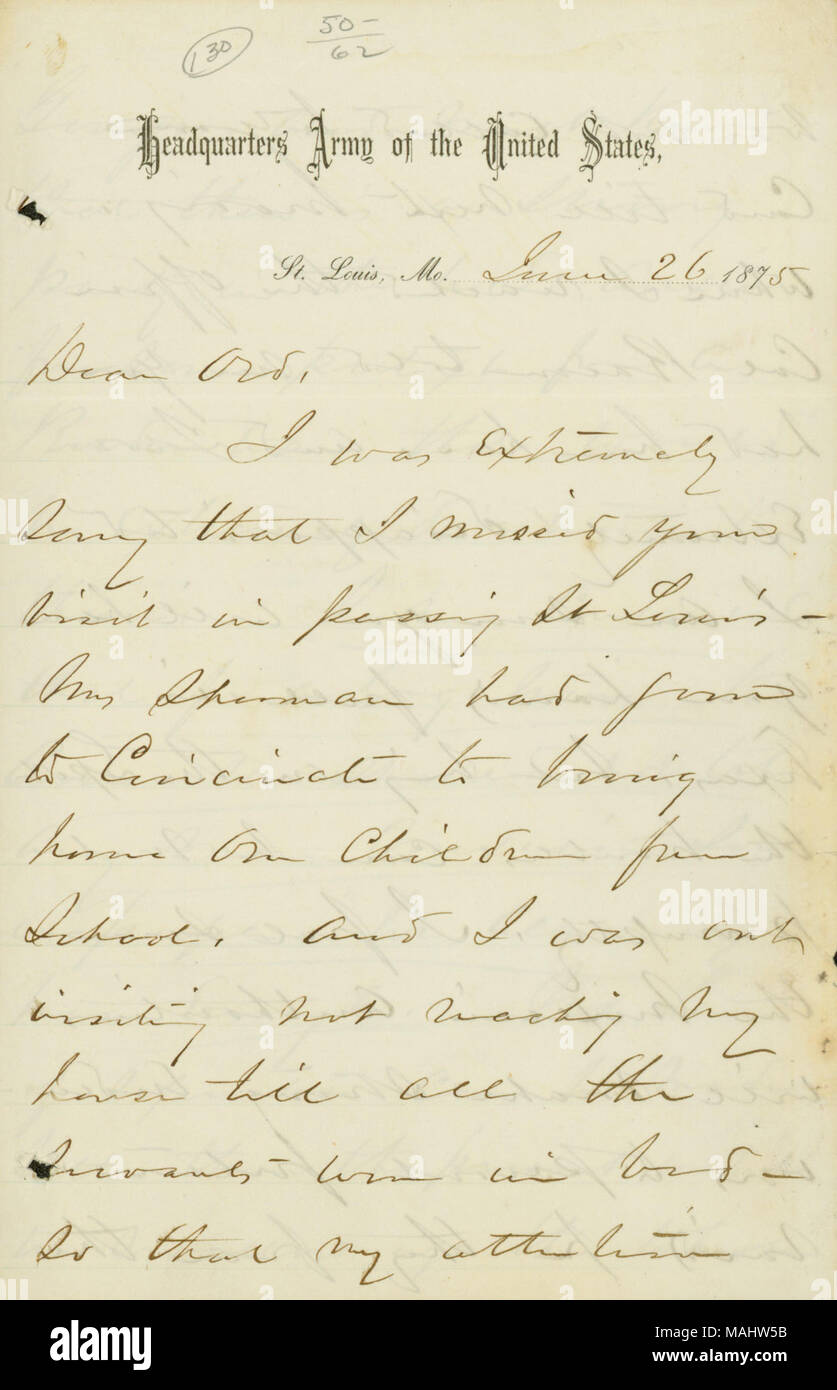 130
50-
62
Headquarters Army of the United States,
St. Louis, Mo. June 26 1875
Dear Ord,
I was extremely
sorry that I missed your
visit in passing St Louis -
Mrs Sherman had gone
to Cincinnati to bring
home our Children from
School, and I was out
visiting not reaching my
house till all the
Servants were in bed -
so that my attention
alamy
Image ID: MAHW5B
www.alamy.com